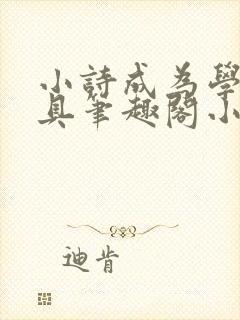 小詩成為學
具筆趣閣小
迪肯